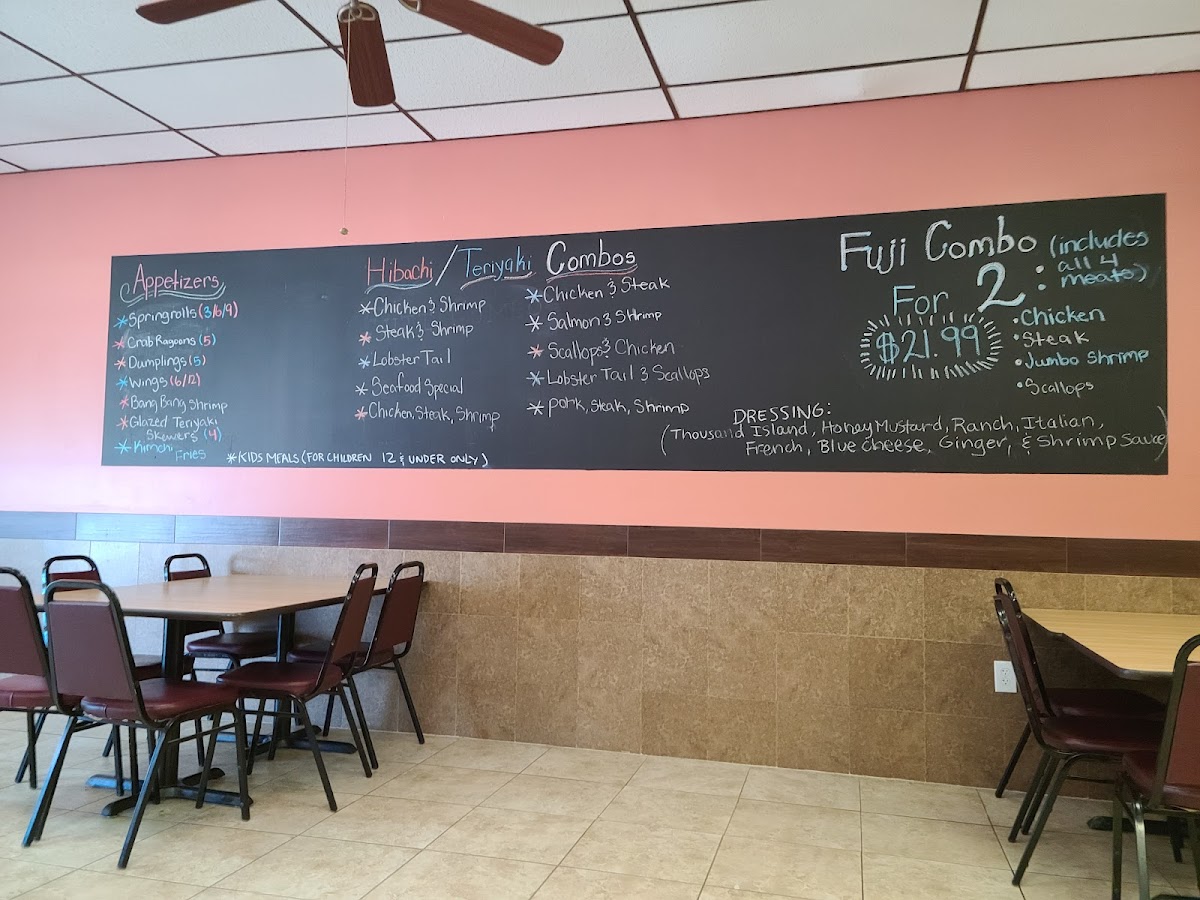 Appetizers
*Springrolls (3/6/9)
*Crab Ragoons (5)
*Dumplings (5)
*Wings (6/12)
*Bang Bang Shrimp
*Glazed Teriyaki
Skewers (4)
*Kimchi Fries
*KIDS MEALS (FOR CHILDREN 12 & UNDER ONLY)
Hibachi/Teriyaki Combos
*Chicken & Shrimp
*Steak & Shrimp
*Lobster Tail
*Seafood Special
*Chicken, Steak, Shrimp
*Chicken & Steak
*Salmon & SHrimp
*Scallops & Chicken
*Lobster Tail & Scallops
*Pork, Steak, Shrimp
Fuji Combo (includes
all 4
meats)
For 2:
$21.99
•Chicken
•Steak
•Jumbo Shrimp
•Scallops
DRESSING:
(Thousand Island, Honey Mustard, Ranch, Italian,
French, Blue cheese, Ginger, & Shrimp Sauce)